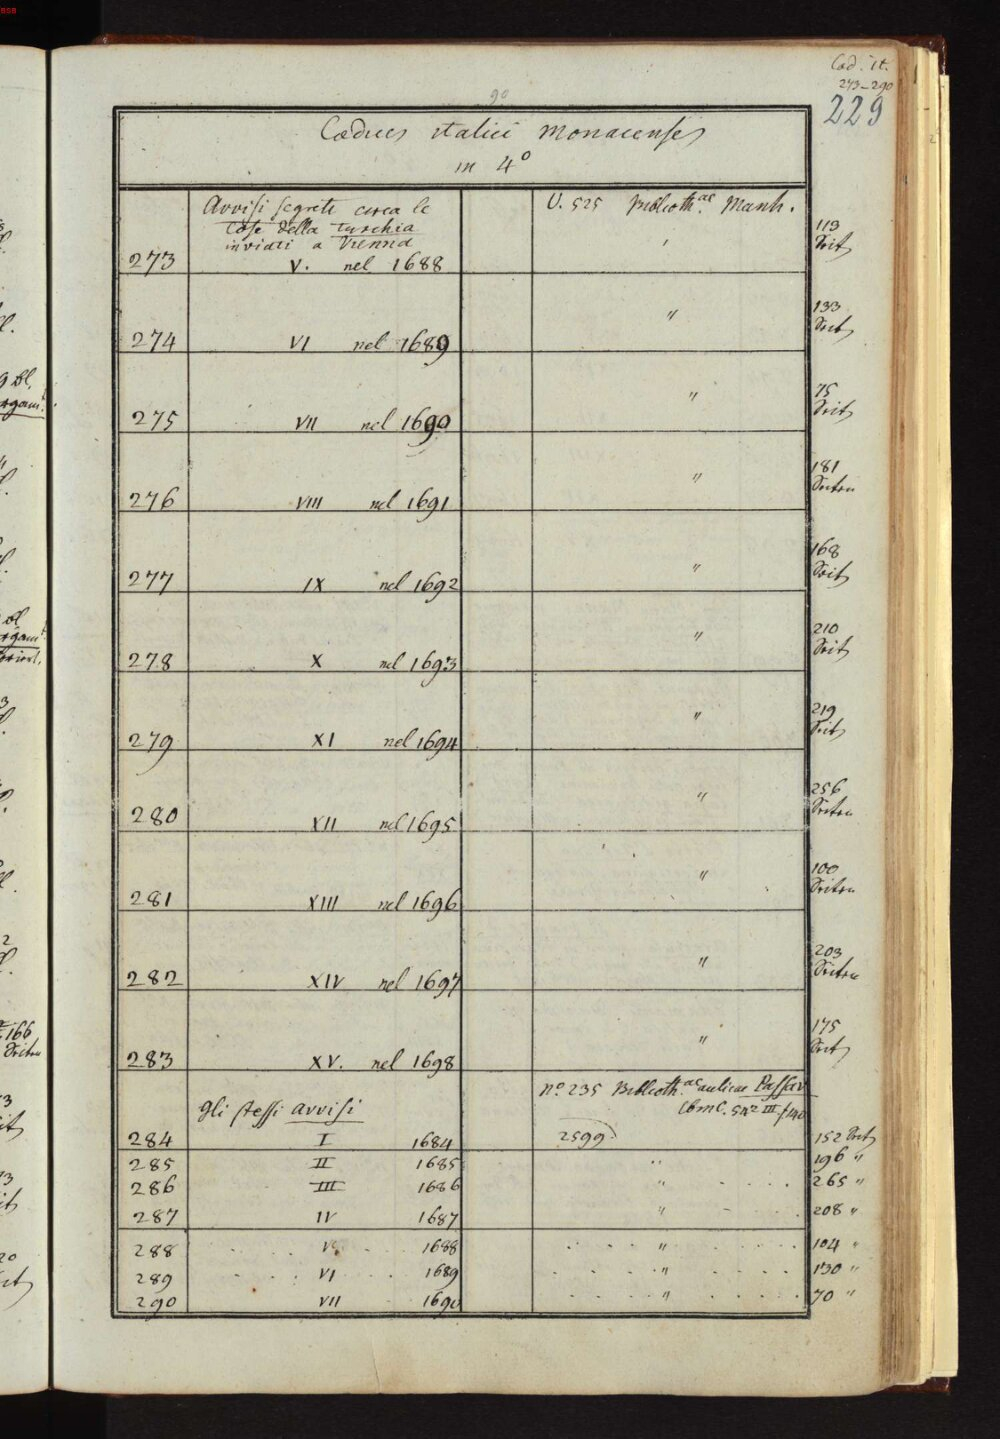 BSB
Cod. it.
273-290
229
90
Codices italici monacenses
in 4º
Avvisi segreti circa le
Cose della Turchia
inviati a Vienna
273 V. nel 1688
U. 525 Biblioth.ae Manh.
"
113
Seit
274 VI nel 1689 "
133
Seit
275 VII nel 1690 "
75
Seit
276 VIII nel 1691 "
181
Seiten
277 IX nel 1692 "
168
Seit
278 X nel 1693 "
210
Seit
279 XI nel 1694 "
219
Seit
280 XII nel 1695 "
256
Seiten
281 XIII nel 1696 "
100
Seiten
282 XIV nel 1697 "
203
Seiten
283 XV. nel 1698 "
175
Seit
gli stessi avvisi
Nº 235 Biblioth.ae aulicae Passav
284 I 1684 2599 152 Seit
285 II 1685 " 196 "
286 III 1686 " 265 "
287 IV 1687 " 208 "
288 V 1688 " 104 "
289 VI 1689 " 130 "
290 VII 1690 " 70 "